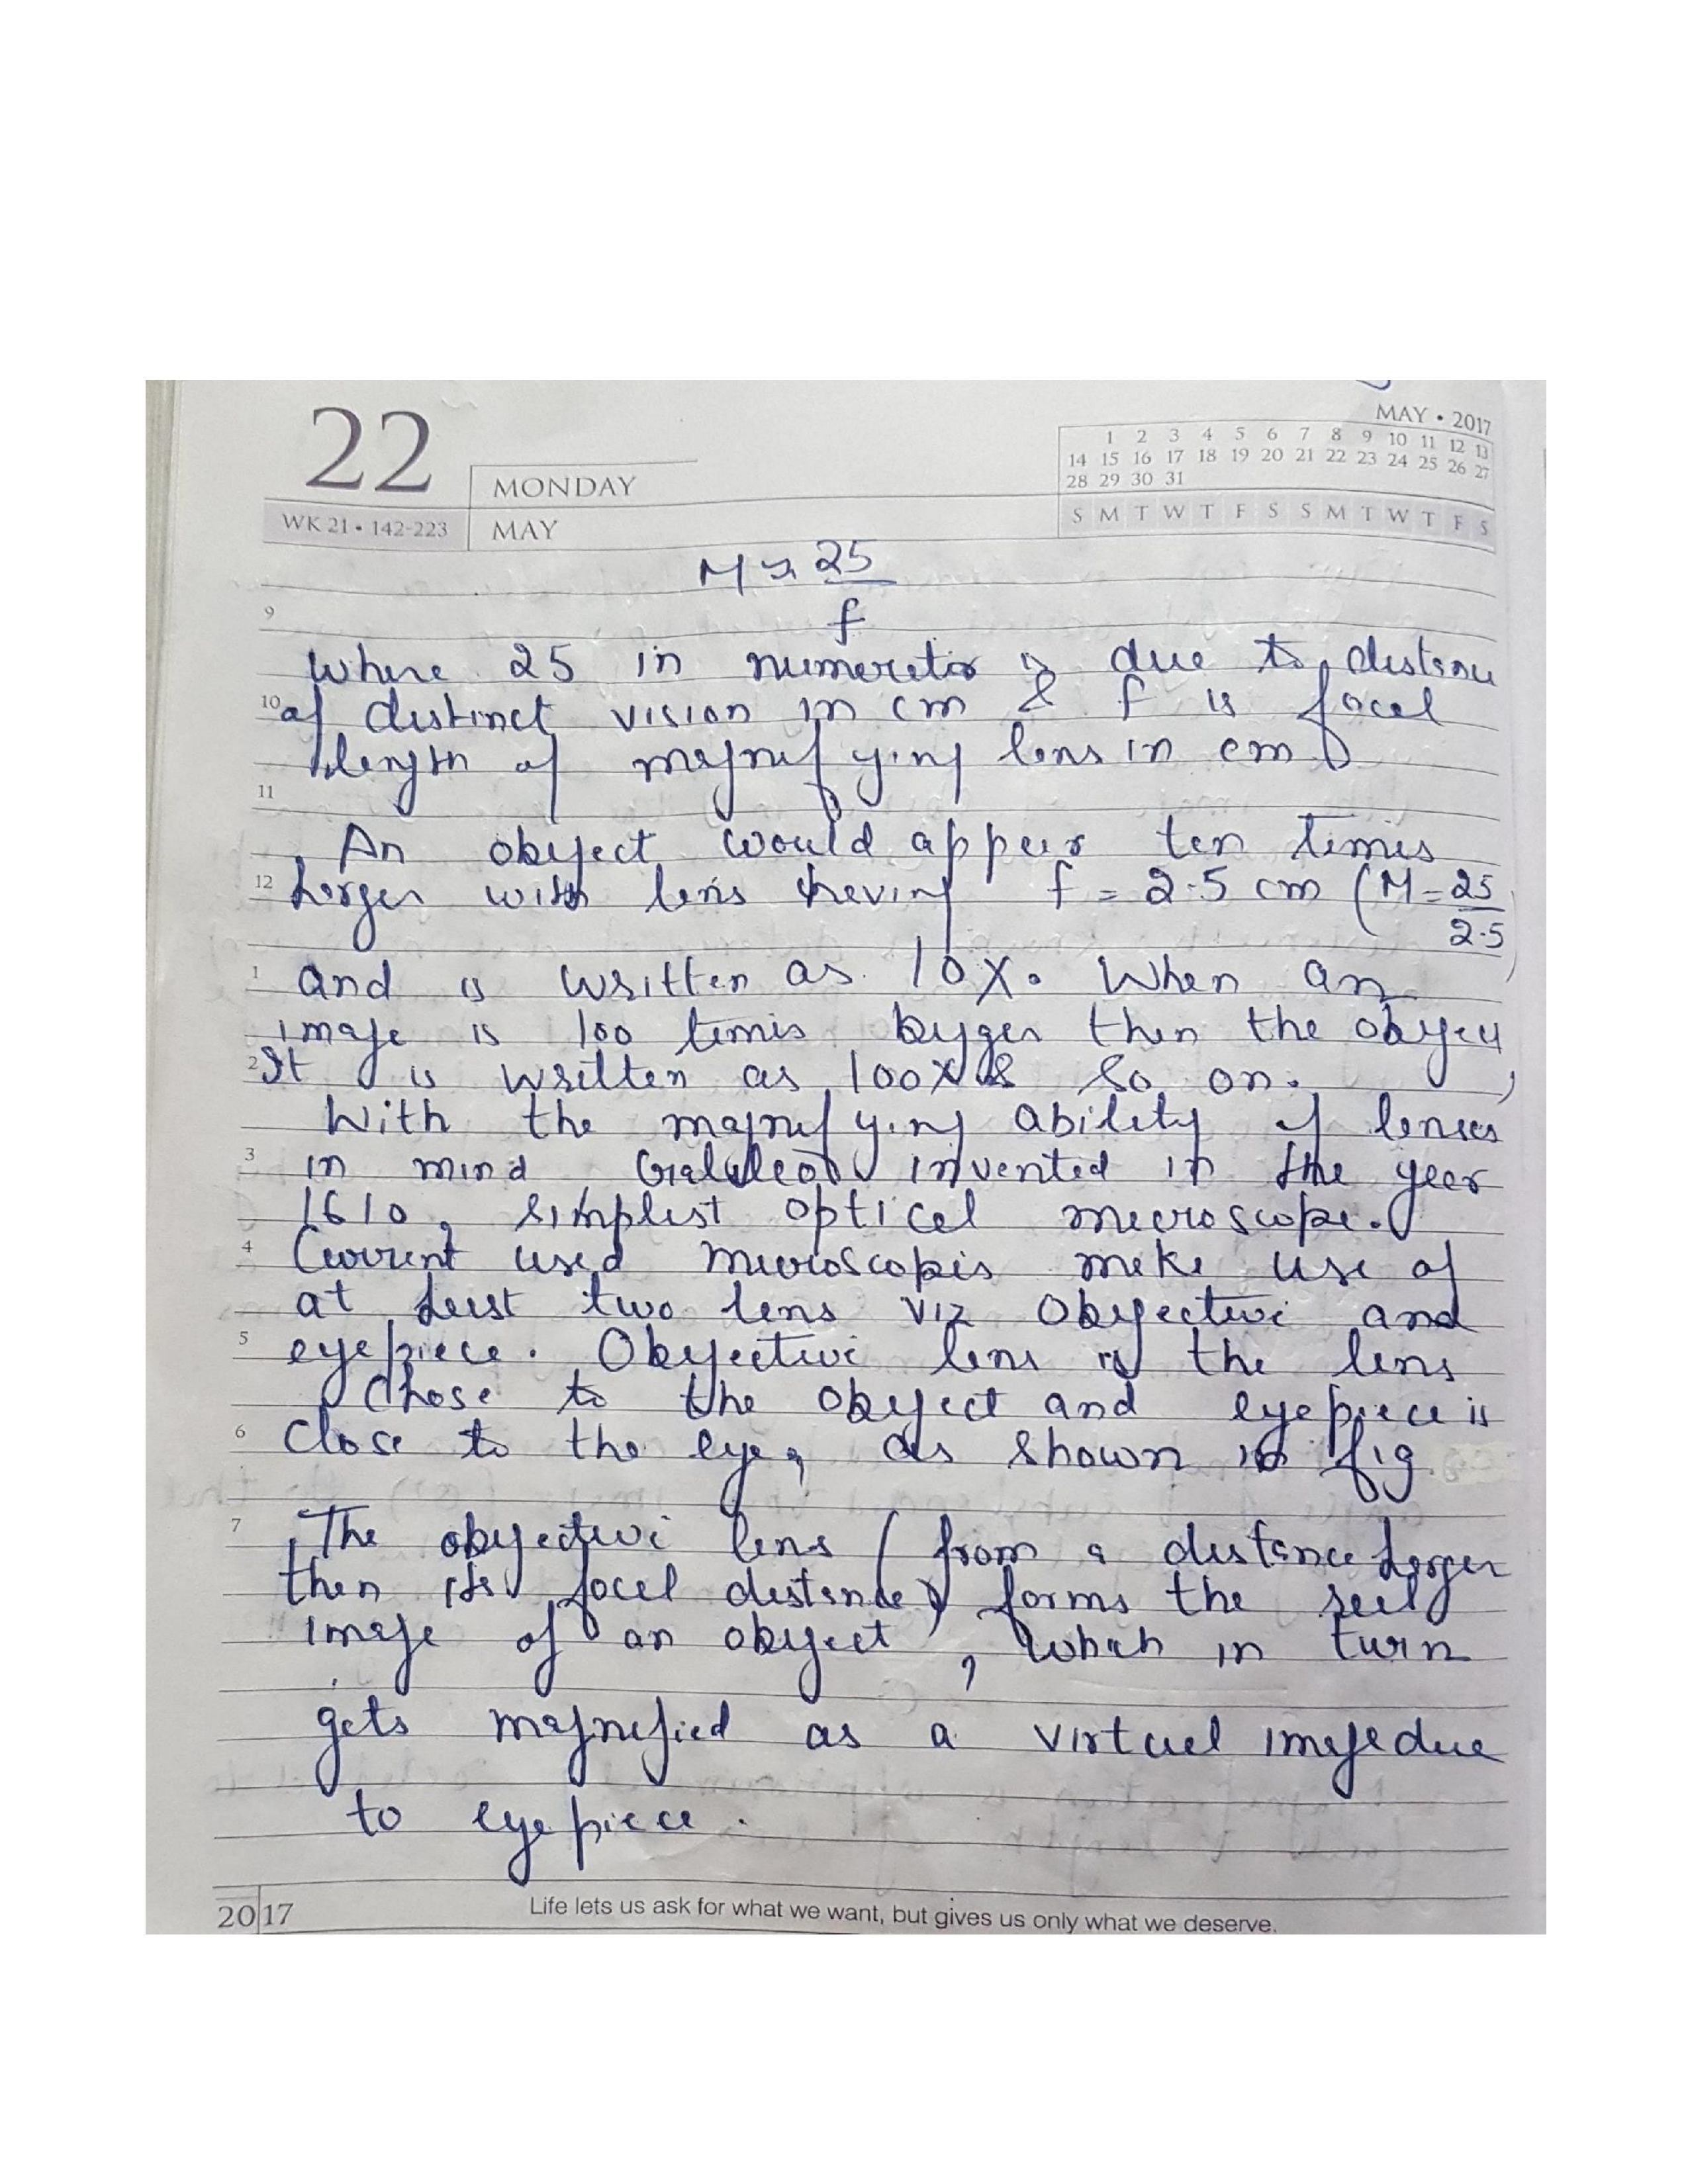 22
MONDAY
WK 21 • 142-223
MAY
MAY • 2017
1 2 3 4 5 6 7 8 9 10 11 12 13
14 15 16 17 18 19 20 21 22 23 24 25 26 27
28 29 30 31
S M T W T F S S M T W T F S
M = 25
9
f
where 25 in numerator is due to distance
10 of distinct vision in cm & f is focal
length of magnifying lens in cm
11
An object would appear ten times
12 larger with lens having f = 2.5 cm (M = 25
2.5)
1 and is written as 10X. When an
image is 100 times bigger then the object,
2 It is written as 100X & so on.
With the magnifying ability of lenses
3 in mind Galileo invented in the year
1610, simplest optical microscope.
4 Current used microscopes make use of
at least two lens viz Objective and
5 eyepiece. Objective lens is the lens
Chose to the object and eyepiece is
6 close to the eye, as shown in fig
7 The objective lens (from a distance larger
then its focal distance) forms the real
image of an object, which in turn
gets magnified as a virtual image due
to eyepiece.
2017
Life lets us ask for what we want, but gives us only what we deserve.